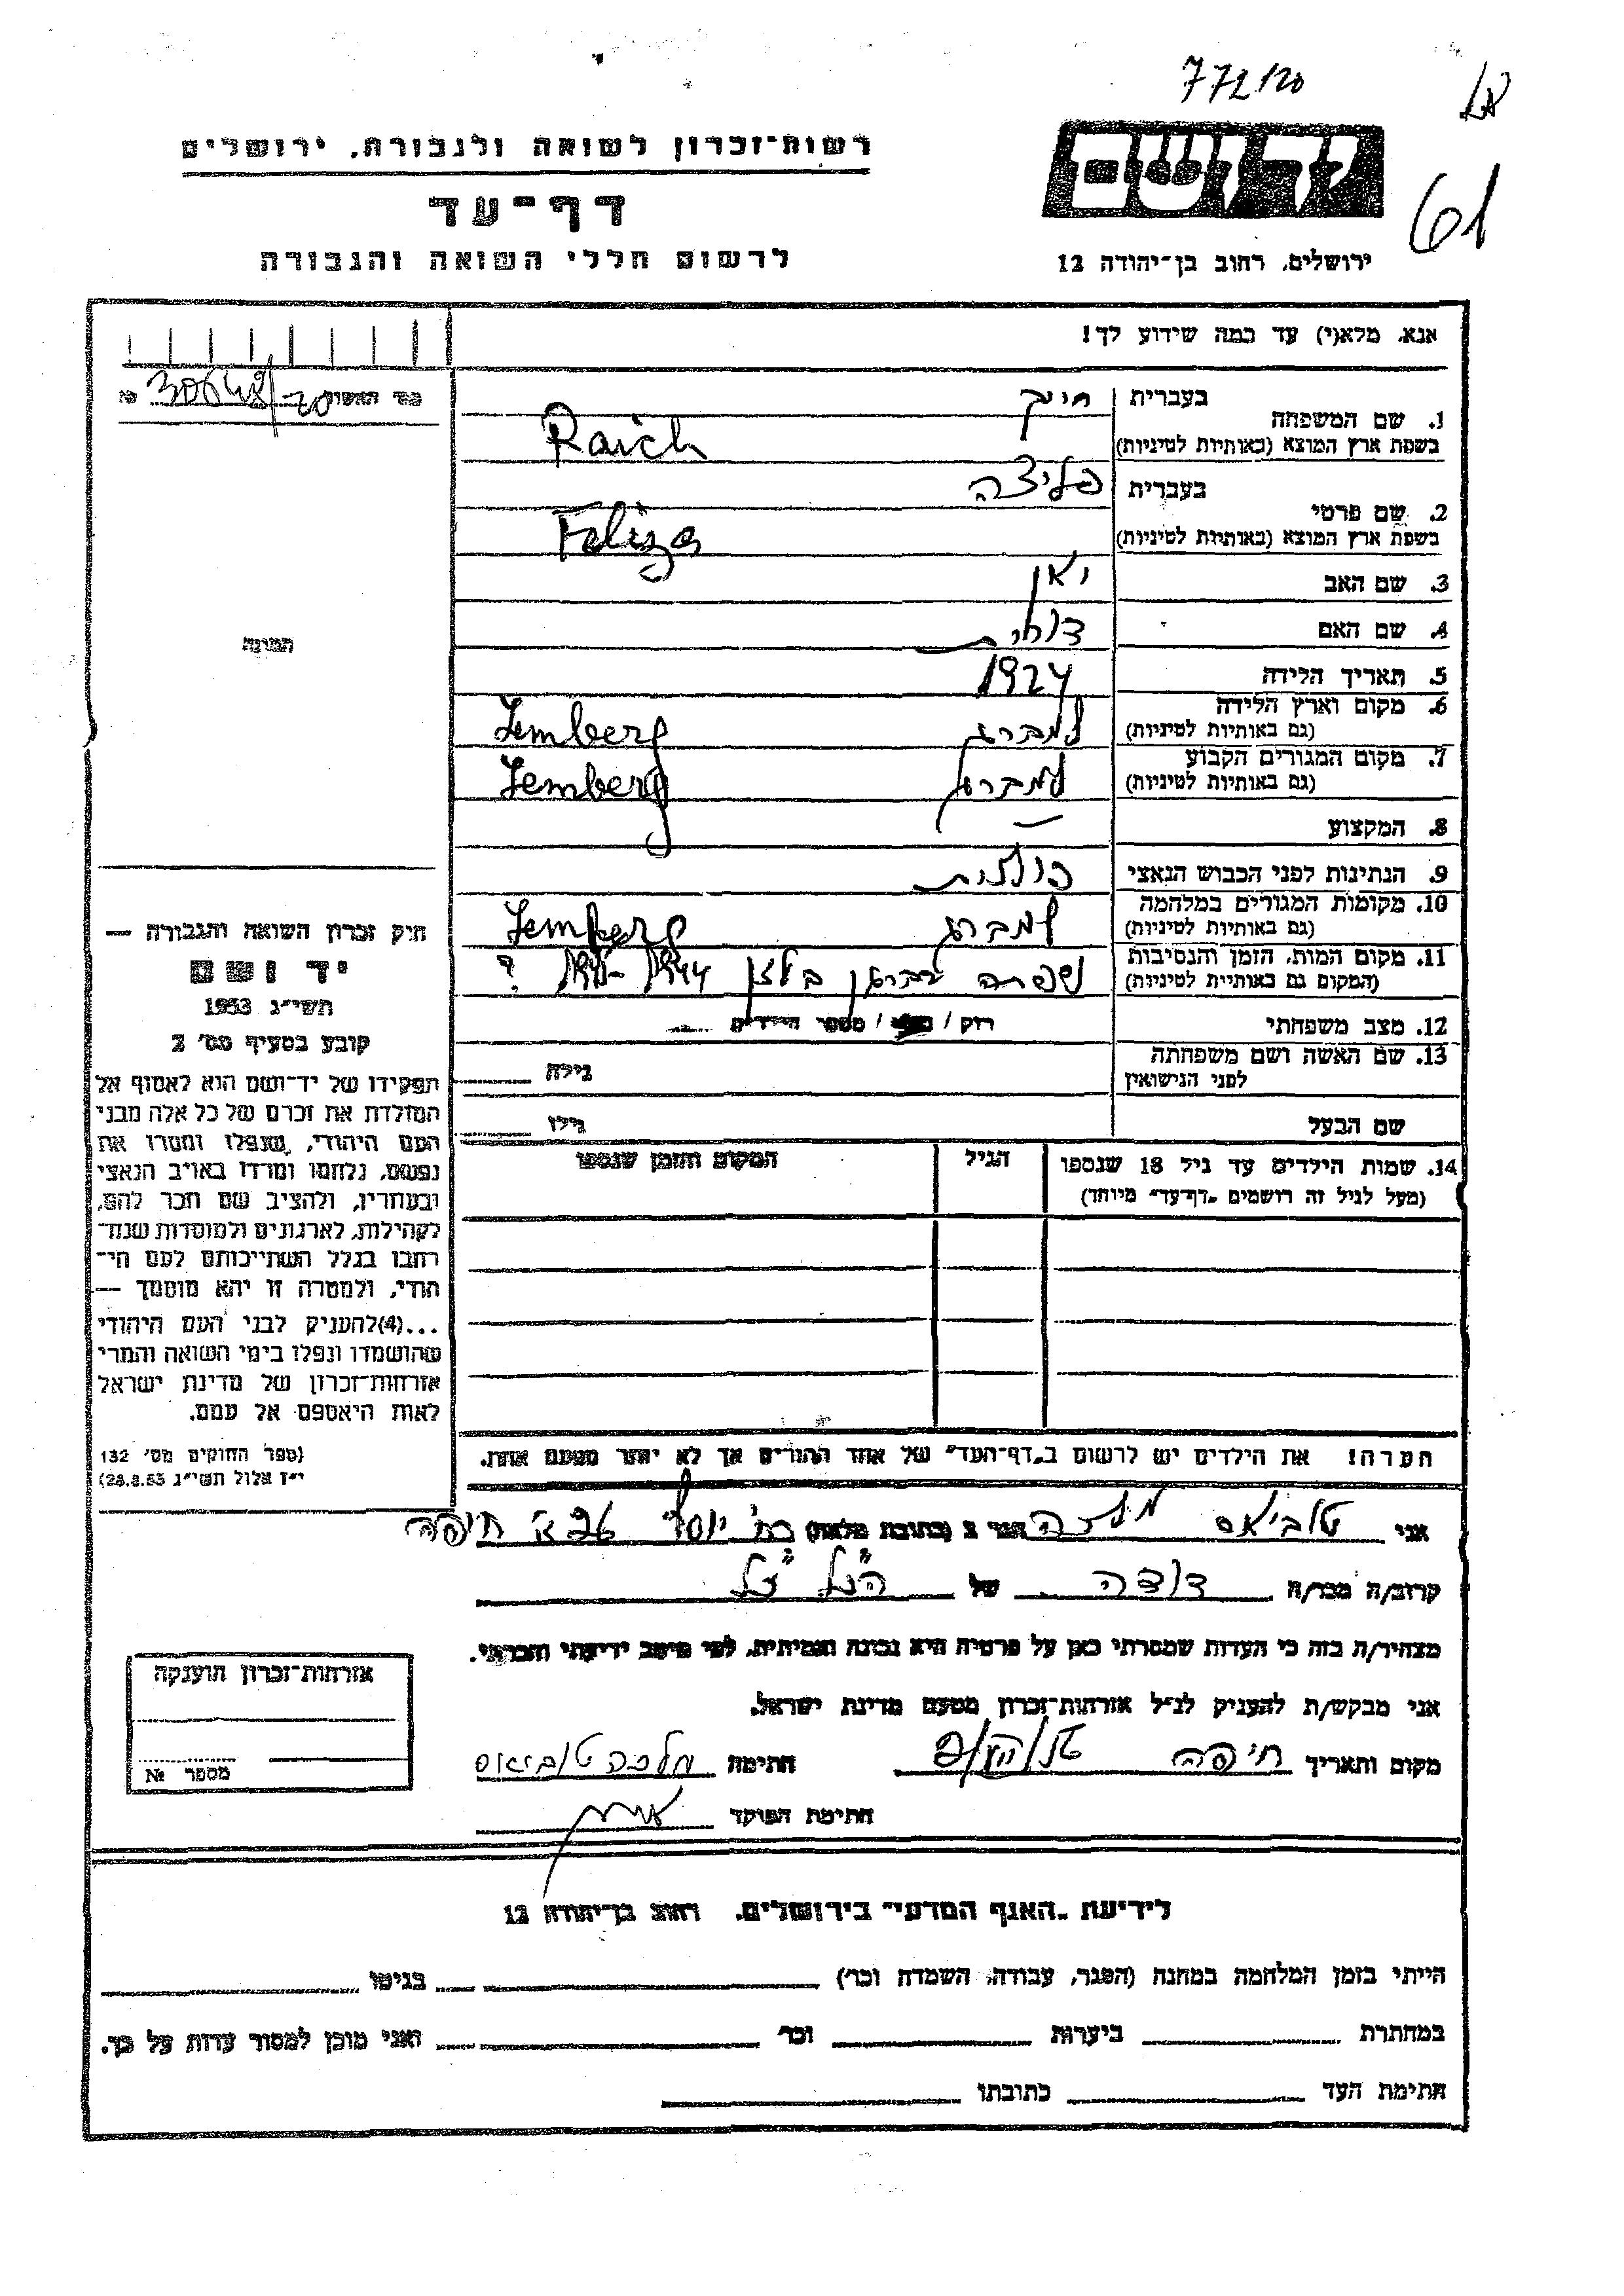 772/20
61
רשות־זכרון לשואה ולגבורה, ירושלים
דף־עד
לרשום חללי השואה והגבורה
יד ושם
ירושלים, רחוב בן־יהודה 12
אנא, מלא(י) עד כמה שידוע לך!
1. שם המשפחה בעברית
בשפת ארץ המוצא (באותיות לטיניות) Raich
2. שם פרטי בעברית פליצה
בשפת ארץ המוצא (באותיות לטיניות) Feliza
3. שם האב יאן
4. שם האם
5. תאריך הלידה 1924
6. מקום וארץ הלידה למברג Lemberg
(גם באותיות לטיניות)
7. מקום המגורים הקבוע למברג Lemberg
(גם באותיות לטיניות)
8. המקצוע —
9. הנתינות לפני הכבוש הנאצי פולנית
10. מקומות המגורים במלחמה למברג Lemberg
(גם באותיות לטיניות)
11. מקום המות, הזמן והנסיבות נספתה ברגן בלזן 1944 ?
(המקום גם באותיות לטיניות)
12. מצב משפחתי רוק / / מספר הילדים
13. שם האשה ושם משפחתה
לפני הנישואין גילה
שם הבעל גילו
14. שמות הילדים עד גיל 18 שנספו הגיל המקום והזמן שנספו
(מעל לגיל זה רושמים „דף־עד” מיוחד)
הערה! את הילדים יש לרשום ב„דף־העד” של אחד ההורים אך לא יותר מפעם אחת.
№
התמונה
חיק זכרון השואה והגבורה —
יד ושם
תשי״ג 1953
קובע בסעיף מס׳ 2
תפקידו של יד־ושם הוא לאסוף אל
המולדת את זכרם של כל אלה מבני
העם היהודי, שנפלו ומסרו את
נפשם, נלחמו ומרדו באויב הנאצי
ובעוזריו, ולהציב שם וזכר להם,
לקהילות, לארגונים ולמוסדות שנח־
רבו בגלל השתייכותם לעם הי־
הודי, ולמטרה זו יהא מוסמך —
...(4)להעניק לבני העם היהודי
שהושמדו ונפלו בימי השואה והמרי
אזרחות־זכרון של מדינת ישראל
לאות היאספם אל עמם.
(ספר החוקים מס׳ 132
י״ז אלול תשי״ג 28.8.53)
אני טוביאס מלכה הגר ב (כתובת מלאה) יוסף חיפה
קרוב/ה מכר/ה דודה של הנ"ל
מצהיר/ה בזה כי העדות שמסרתי כאן על פרטיה היא נכונה ואמיתית, לפי מיטב ידיעתי והכרתי.
אני מבקש/ת להעניק לנ״ל אזרחות־זכרון מטעם מדינת ישראל.
מקום ותאריך חיפה חתימה מלכה טוביאס
חתימת הפוקד
אזרחות־זכרון הוענקה
מספר №
לידיעת „האגף המדעי” בירושלים, רחוב בן־יהודה 12
הייתי בזמן המלחמה במחנה (הסגר, עבודה, השמדה וכו׳) בגיטו
במחתרת ביערות וכו׳ ואני מוכן למסור עדות על כך.
חתימת העד כתובתו